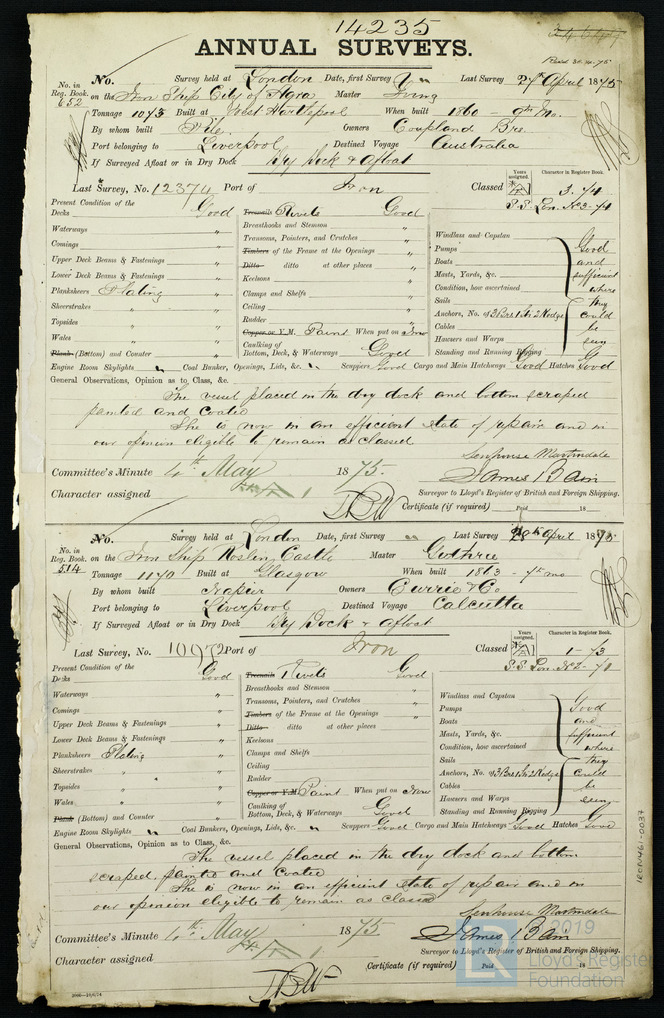 14235
ANNUAL SURVEYS.
Recd 30.4.75
No. Survey held at London Date, first Survey " Last Survey 27th April 1875
No. in Reg. Book. 652 on the Iron Ship City of Agra Master Young
Tonnage 1073 Built at West Hartlepool When built 1860 - 9th Mo.
By whom built Pile Owners Coupland Bros.
Port belonging to Liverpool Destined Voyage Australia
If Surveyed Afloat or in Dry Dock Dry Dock & Afloat
Last Survey, No. 12374 Port of Iron Classed
Years assigned.
Character in Register Book.
3.74
S.S. Lon. No3-74
Present Condition of the
Decks Good
Waterways "
Comings "
Upper Deck Beams & Fastenings "
Lower Deck Beams & Fastenings "
Planksheers Plating "
Sheerstrakes "
Topsides "
Wales "
Plank (Bottom) and Counter "
Treenails Rivets Good
Breasthooks and Stemson "
Transoms, Pointers, and Crutches "
Timbers of the Frame at the Openings "
Ditto ditto at other places "
Keelsons "
Clamps and Shelfs "
Ceiling "
Rudder "
Copper or Y.M. Paint When put on Now
Caulking of
Bottom, Deck, & Waterways Good
Windlass and Capstan
Pumps Good
Boats and
Masts, Yards, &c. sufficient
Condition, how ascertained where
Sails they
Anchors, No. of 3 Brs 1 St 2 Kedge could
Cables be
Hawsers and Warps seen
Standing and Running Rigging Good
Engine Room Skylights " Coal Bunker, Openings, Lids, &c. " Scuppers Good Cargo and Main Hatches Good Hatches Good
General Observations, Opinion as to Class, &c.
The vessel placed in the dry dock and bottom scraped
painted and coated
She is now in an efficient state of repair and in
our opinion eligible to remain as classed
Senhouse Martindale
James Bain
Committee's Minute 4th May 1875.
Character assigned
Surveyor to Lloyd's Register of British and Foreign Shipping.
Certificate (if required) Paid 18
No. Survey held at London Date, first Survey " Last Survey 28th April 1875
No. in Reg. Book. 514 on the Iron Ship Roslin Castle Master Guthrie
Tonnage 1170 Built at Glasgow When built 1863 7th mo
By whom built Napier Owners Currie & Co.
Port belonging to Liverpool Destined Voyage Calcutta
If Surveyed Afloat or in Dry Dock Dry Dock & Afloat
Last Survey, No. 10072 Port of Iron Classed
Years assigned.
Character in Register Book.
1-73
S.S. Lon. No2-70
Present Condition of the
Decks Good
Waterways "
Comings "
Upper Deck Beams & Fastenings "
Lower Deck Beams & Fastenings "
Planksheers Plating "
Sheerstrakes " "
Topsides " "
Wales " "
Plank (Bottom) and Counter "
Treenails Rivets Good
Breasthooks and Stemson "
Transoms, Pointers, and Crutches "
Timbers of the Frame at the Openings "
Ditto ditto at other places "
Keelsons "
Clamps and Shelfs "
Ceiling "
Rudder "
Copper or Y.M. Paint When put on Now
Caulking of
Bottom, Deck, & Waterways Good
Windlass and Capstan
Pumps Good
Boats and
Masts, Yards, &c. sufficient
Condition, how ascertained where
Sails they
Anchors, No. of 3 Brs 1 St 2 Kedge could
Cables be
Hawsers and Warps seen
Standing and Running Rigging
Engine Room Skylights " Coal Bunkers, Openings, Lids, &c. " Scuppers Good Cargo and Main Hatchways Good Hatches Good
General Observations, Opinion as to Class, &c.
The vessel placed in the dry dock and bottom
scraped painted and coated
She is now in an efficient state of repair and in
our opinion eligible to remain as classed
Senhouse Martindale
James Bain
Committee's Minute 4th May 1875
Character assigned
Surveyor to Lloyd's Register of British and Foreign Shipping.
Certificate (if required) Paid 18
IRON461-0037
2019
LR
Lloyd's Register
Foundation